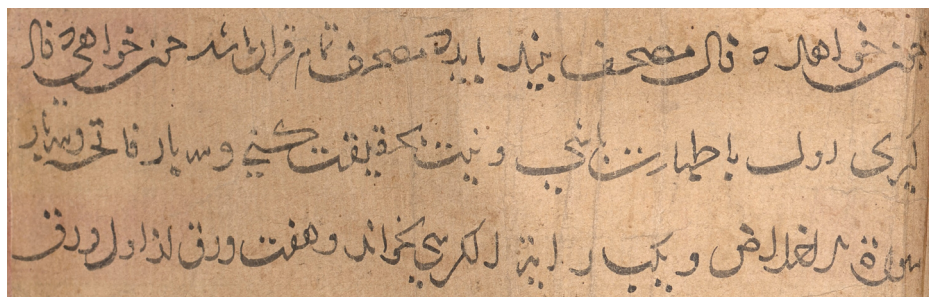 چون خواهد که فال مصحف بیند باید که مصحف تمام قران باشد چون خواهی فال
گیری اول با طهارت باشی و نیت بحقیقت کنی و سه بار فاتحه و سه بار
سورة الاخلاص و یکبار ایة الکرسی بخواند و هفت ورق از اول ورق